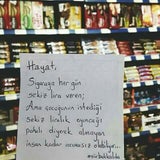 Hayat,
Sigaraya her gün
sekiz lira veren;
Ama çocuğunun istediği
sekiz liralık oyuncağı
pahalı diyerek almayan
insan kadar acımasız olabiliyor...